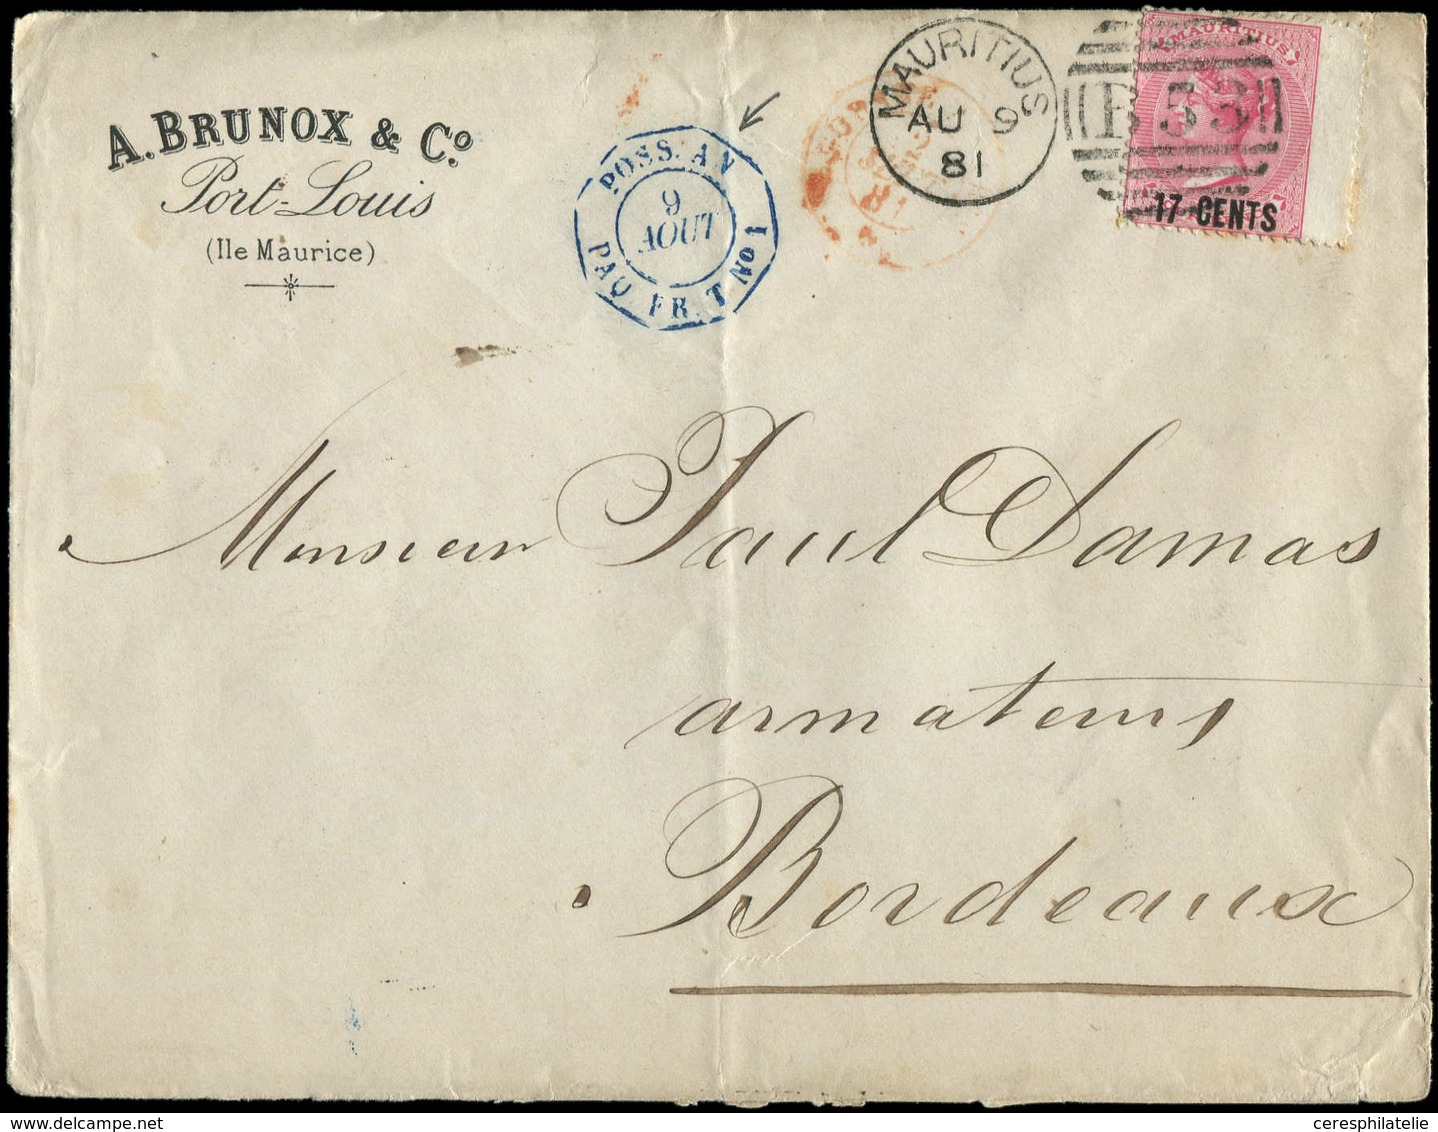 A. BRUNOX & Cº.
Port-Louis
(Ile Maurice)
POSS. AN
9
AOUT
PAQ. FR. T No 1
MAURITIUS
AU 9
81
B53
MAURITIUS
17 CENTS
Monsieur Paul Damas
armateurs
Bordeaux
ceresphilatelie